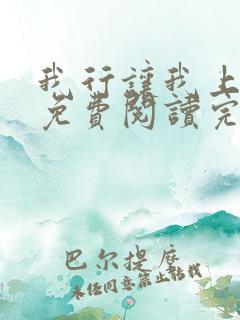 我行讓我上
免費閱讀完
巴尔提摩
未经同意禁止转载